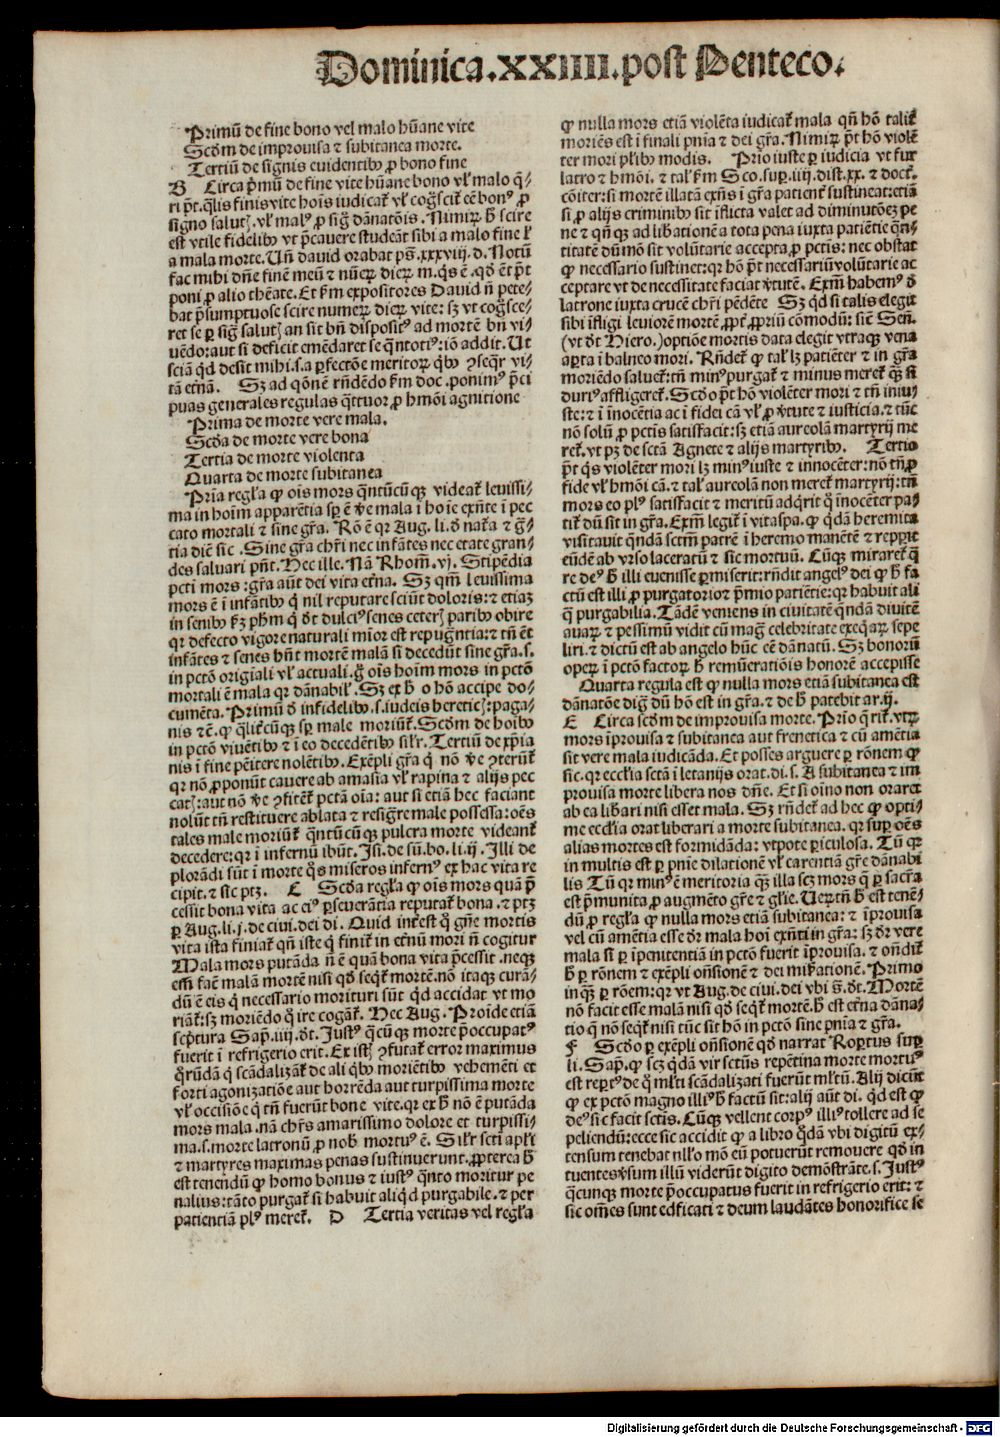 Dominica.XXIIII.post Penteco.
Primũ de fine bono vel malo hũane vite
Scđm de improuisa ⁊ subitanea morte.
Tertiũ de signis euidentibꝰ ꝓ bono fine
B Circa pͥmũ de fine vite hũane bono vl̓ malo
signo salutꝭ. vl̓ malꝰ ꝓ sigͦ dãnatõis. Nimiꝝ h̓ scire
est vtile fidelibꝰ vt p̄cauere studeãt sibi a malo fine
a mala morte. Uñ dauid orabat pš. xxxviij. d. Notũ
fac mihi dñe finẽ meũ ⁊ nũeꝝ dieꝝ m.
poni ꝓ alio theãte. Et ẜm expositores Dauid ñ pete-
bat p̄sumptuose scire numeꝝ dieꝝ vite:
ret se ꝑ sigͣ salutꝭ an sit bñ dispositꝰ ad mortẽ bñ vi-
uẽdo: aut si deficit emẽdaret se
sciã qͥd desit mihi. s. a ꝑfectõe meritoꝝ
tã etñã. Sꝫ ad qõnẽ rñdẽdo ẜm doc. ponimꝰ
puas generales regulas qͣttuor ꝓ hmõi agnitione
Prima de morte vere mala.
Scđa de morte vere bona
Tertia de morte violenta
Quarta de morte subitanea
Pria regl̓a ꝙ ois mors qͣntũcũqꝫ videat᷑ leuissi-
ma in hoim apparẽtia
cato mortali ⁊ sine gr̃a.
tia diẽ sic. Sine gr̃a chr̃i nec infãtes nec etate gran-
des saluari pñt. Hec ille. Nã Rhom̃. vj. Stipẽdia
pcti mors: gr̃a aũt dei vita etñã. Sꝫ qm̃ leuissima
mors ẽ ĩ infãtibꝰ qͥ nil reputare sciũt doloris: ⁊ etiaꝫ
in senibꝰ
qꝛ defecto vigore naturali mior est repugͣntia: ⁊ tñ
infãtes ⁊ senes hñt mortẽ malã si decedũt sine gr̃a. s.
in pctõ origĩali vl̓ actuali. ois hoim mors in pctõ
mortali ẽ mala qꝛ dãnabil̓. Sꝫ ex h̓ o hõ accipe do-
cumẽta. Primũ đ infidelibꝰ. s. iudeis hereticꝭ: paga-
nis ⁊c̃. ꝙ male moriũt᷑. Scđm de hoibꝰ
in pctõ viuẽtibꝰ ⁊ ĩ eo decedẽtibꝰ sil̓r. Tertiũ de xp̃ia
nis ĩ fine pẽitere nolẽtibꝰ. Exẽpli gr̃a
qꝛ nõ ꝓponũt cauere ab amasia vl̓ rapina ⁊ alijs pec
catꝭ: aut nõ ꝟe ꝯfitẽt᷑ pctã oĩa: aut si etiã hec faciant
nolũt tñ restituere ablata ⁊ resigͣre male possessa: oẽs
tales male moriũt᷑ qͣntũcũqꝫ pulcra morte videant᷑
decedere: qꝛ ĩ infernũ ibũt. Isi. de sũ. bo. li. ij. Illi de
plorãdi sũt ĩ morte qͦs miseros infernꝰ ex hac vita re
cipit. ⁊ sic ptꝫ. C Scđa regl̓a ꝙ ois mors quã p̄
cessit bona vita ac eiꝰ ꝑseuerãtia reputat᷑ bona. ⁊ ptꝫ
ꝑ Aug. li. j. de ciui. dei di. Quid intẽst qͦ gñe mortis
vita ista finiat᷑ qñ iste qͥ finit᷑ in etñũ mori ñ cogitur
Mala mors putãda ñ ẽ quã bona vita p̄cessit. neqꝫ
eñi faẽ malam mortẽ nisi qđ seqͥt᷑ mortẽ. nõ itaqꝫ curã-
dũ ẽ eis qͥ necessario morituri sũt qͥd accidat vt mo
riãt᷑: sꝫ moriẽdo qͦ ire cogãt᷑. Hec Aug. Proide etiã
scp̄tura Sap. iiij. đt. Justꝰ morte p̄occupatꝰ
fuerit ĩ refrigerio erit. Ex istꝭ ꝯfutat᷑ error maximus
qͦrũdã qͥ scãdalizãt᷑ de ali qͥbꝰ moriẽtibꝰ vehemẽti et
forti agonizatiõe aut horrẽda aut turpissima morte
vl̓ occisiõe qͥ tñ fuerũt bone vite. qꝛ ex h̓ nõ ẽ putãda
mors mala. nã chr̃s amarissimo dolore et turpissi-
ma. s. morte latronũ ꝓ nobꝭ mortuꝰ ẽ. Sil̓r scti apl̓i
⁊ martyres maximas penas sustinuerunt. ꝓpterea h̓
est tenendũ ꝙ homo bonus ⁊ iustꝰ qͣnto moritur pe
nalius: tãto purgat᷑ si habuit aliqͥd purgabile. ⁊ per
patientiã plꝰ meret᷑. D Tertia veritas vel regl̓a
ꝙ nulla mors etiã violẽta iudicat᷑ mala qñ hõ talit᷑
moriẽs est ĩ finali pñia ⁊ dei gr̃a. Nimiꝝ p̃t hõ violẽ
ter mori pl̓ibꝰ modis. Prio iuste ꝑ iudicia vt fur
latro ⁊ hmõi. ⁊ tal̓ ẜm Sco. suꝑ. iiij. dist. xx. ⁊ doct.
cõiter: si mortẽ illatã exñs ĩ gr̃a patient᷑ sustineat: etiã
si ꝓ alijs criminibꝰ sit ĩflicta valet ad diminutõeꝫ pe
ne ⁊ qñqꝫ ad libationẽ a tota pena iuxta patiẽtie qͣn-
titatẽ dũmõ sit volũtarie accepta ꝓ pctis: nec obstat
ꝙ necessario sustinet: qꝛ hõ p̃t necessariũ volũtarie ac
ceptare vt de necessitate faciat ꝟtutẽ. Exm̃ habemꝰ đ
latrone iuxta crucẽ chr̃i pẽdẽte Sꝫ qͥd si talis elegit
sibi ĩfligi leuiorẽ mortẽ ꝓpt᷑ ꝓpriũ cõmodũ: sicẽ Señ.
(vt đt Hiero.) optiõe mortis data elegit vtraqꝫ vena
aꝑta ĩ balneo mori. Rñdet᷑ ꝙ tal̓ lꝫ patiẽter ⁊ in gr̃a
moriẽdo saluet᷑: tñ minꝰ purgat᷑ ⁊ minus meret᷑ si
duriꝰ affligeret᷑. Scđo p̃t hõ violẽter mori ⁊ tñ iniu-
ste: ⁊ ĩ ĩnocẽtia ac ĩ fidei cã vl̓ ꝓ ꝟtute ⁊ iusticia. ⁊ tũc
nõ solũ ꝓ pctis satisfacit: sꝫ etiã aureolã martyrij me
ret᷑. vt pꝫ de sctã Agnete ⁊ alijs martyribꝰ. Tertio
p̃t qͥs violẽter mori lꝫ minꝰ iuste ⁊ innocẽter: nõ tñ ꝓ
fide vl̓ hmõi cã. ⁊ tal̓ aureolã non meret᷑ martyrij: tñ
mors eo plꝰ satisfacit ⁊ meritũ adqͥrit qͦ ĩnocẽter pa-
tit᷑ dũ sit in gr̃a. Exm̃ legit᷑ ĩ vitaspa. ꝙ qͥdã heremita
visitauit qͣndã sctm̃ patrẽ ĩ heremo manẽtẽ ⁊ reꝑit
eũdẽ ab vrso laceratũ ⁊ sic mortuũ. Cũqꝫ miraret᷑
re deꝰ h̓ illi euenisse ꝑmiserit: rñdit angelꝰ dei ꝙ h̓ fa
ctũ est illi ꝓ purgatorio ⁊ p̄mio patiẽtie: qꝛ habuit ali
qͣ purgabilia. Tãdẽ veniens in ciuitatẽ qͣndã diuitẽ
auaꝝ ⁊ pessimũ vidit cũ magͣ celebritate exeqͣꝝ sepe
liri. ⁊ dictũ est ab angelo hũc eẽ dãnatũ. Sꝫ bonorũ
opeꝝ ĩ pctõ factoꝝ h̓ remũeratiõis honorẽ accepisse
Quarta regula est ꝙ nulla mors etiã subitanea est
dãnatõe digͣ dũ hõ est in gr̃a. ⁊ de h̓ patebit ar. ij.
E Circa scđm de improuisa morte. Prio
mors ĩprouisa ⁊ subitanea aut frenetica ⁊ cũ amẽtia
sit vere mala iudicãda. Et posses arguere ꝑ rõnem ꝙ
sic. qꝛ eccl̓ia sctã ĩ letanijs orat. di. s. A subitanea ⁊ im
prouisa morte libera nos dñe. Et si oĩno non oraret
ab ea libari nisi esset mala. Sꝫ rñdet᷑ ad hec ꝙ opti-
me eccl̓ia orat liberari a morte subitanea. qꝛ suꝑ oẽs
alias mortes est formidãda: vtpote ꝑiculosa.
in multis est ꝑ pñie dilationẽ vl̓ carentiã gr̃e dãnabi
lis Tũ qꝛ minꝰ ẽ meritoria qͣꝫ illa scꝫ mors qͣ ꝑ sacr̃a
est p̄munita ꝓ augmẽto gr̃e ⁊ gl̓ie. Ueꝝtñ h̓ est tenẽ-
dũ ꝓ regl̓a ꝙ nulla mors etiã subitanea: ⁊ ĩprouisa
vel cũ amẽtia esse đꝛ mala hoĩ exñti in gr̃a: sꝫ đꝛ vere
mala si ꝑ ĩpenitentiã in pctõ fuerit ĩprouisa. ⁊ oñdit᷑
h̓ ꝑ rõnem ⁊ exẽpli oñsionẽ ⁊ dei mirationẽ. Primo
inqͣꝫ ꝑ rõem: qꝛ vt Aug. de ciui. dei vbi s̃. đt. Mortẽ
nõ facit esse malã nisi qđ seqͥt᷑ mortẽ. h̓ est etñã dãna-
tio qͣ nõ seqͥt᷑ nisi tũc sit hõ in pctõ sine pñia ⁊ gr̃a.
F Scđo ꝑ exẽpli oñsionẽ qđ narrat Roꝑtus suꝑ
li. Sap. ꝙ scꝫ qͥdã vir sctũs repẽtina morte mortuꝰ
est reꝑtꝰ de qͦ ml̓ti scãdalizati fuerũt ml̓tũ. Alij dicũt
ꝙ ex pctõ magno illiꝰ h̓ factũ sit: alij aũt di. qͥd est ꝙ
deꝰ sic facit sctis. Cũqꝫ vellent corpꝰ illiꝰ tollere ad se
peliendũ: ecce sic accidit ꝙ a libro qͦdã vbi digitũ ex-
tensum tenebat nll̓o mõ eũ potuerũt remouere qđ in
tuentes ꝟsum illũ viderũt digito demõstrãte. s. Justꝰ
qͥcunqꝫ morte p̄occupatus fuerit in refrigerio erit: ⁊
sic om̃es sunt edificati ⁊ deum laudãtes honorifice se
Digitalisierung gefördert durch die Deutsche Forschungsgemeinschaft - DFG